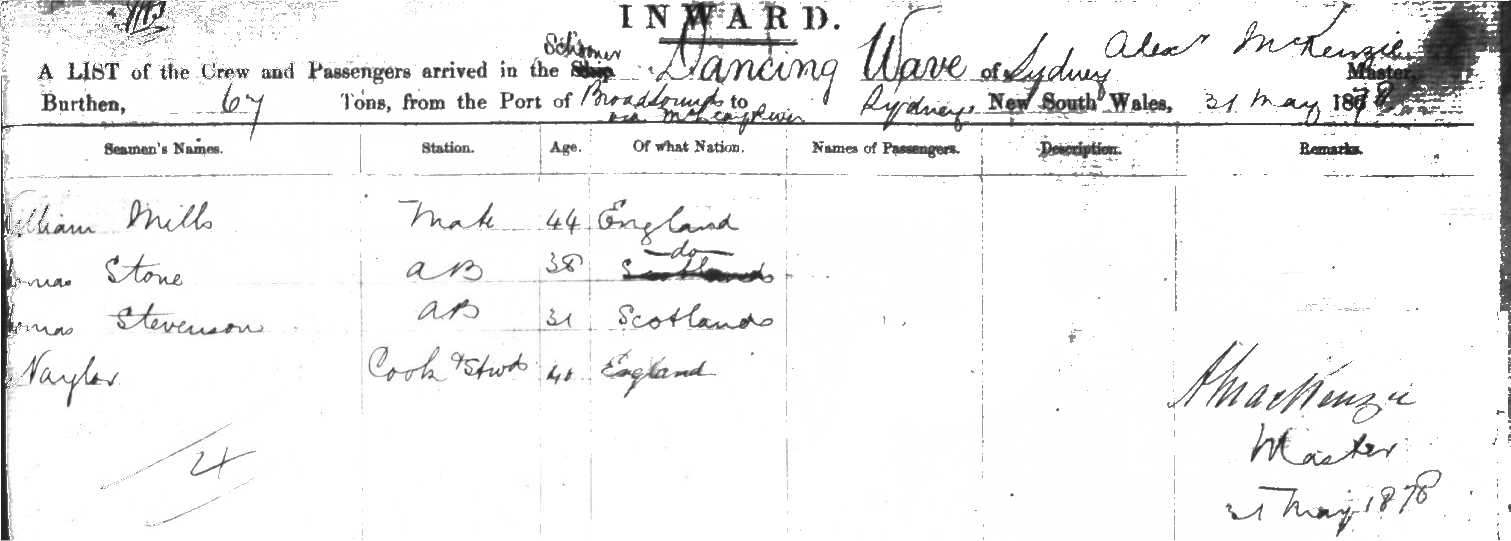 INWARD.
Schooner Alexr McKenzie
A LIST of the Crew and Passengers arrived in the Ship Dancing Wave of Sydney Master,
Burthen, 67 Tons, from the Port of Broadsound to Sydney New South Wales, 31 May 1878
via River
Seamen's Names. Station. Age. Of what Nation. Names of Passengers. Description. Remarks.
William Mills Mate 44 England
do
omas Stone AB 38 Scotland
omas Stevenson AB 31 Scotland
Naylor Cook & Stwd 40 England
A MacKenzie
Master
4
31 May 1878